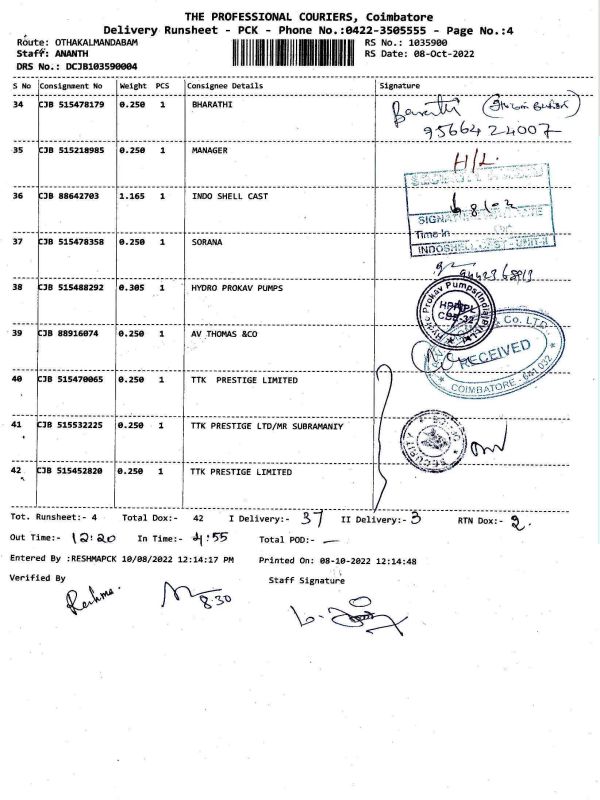 THE PROFESSIONAL COURIERS, Coimbatore
Delivery Runsheet - PCK - Phone No.:0422-3505555 - Page No.:4
Route: OTHAKALMANDABAM RS No.: 1035900
Staff: ANANTH RS Date: 08-Oct-2022
DRS No.: DCJB103590004
S No Consignment No Weight PCS Consignee Details Signature
34 CJB 515478179 0.250 1 BHARATHI Barathi
9566424007
35 CJB 515218985 0.250 1 MANAGER H/L.
36 CJB 88642703 1.165 1 INDO SHELL CAST
Time-In
INDOSHELL CAST - UNIT-II
37 CJB 515478358 0.250 1 SORANA
38 CJB 515488292 0.305 1 HYDRO PROKAV PUMPS
Hydro Prokav Pumps(India)Pvt.Ltd
39 CJB 88916074 0.250 1 AV THOMAS &CO
Co. LTD.
RECEIVED
COIMBATORE - 641 032
40 CJB 515470065 0.250 1 TTK PRESTIGE LIMITED
41 CJB 515532225 0.250 1 TTK PRESTIGE LTD/MR SUBRAMANIY
SECURITY
42 CJB 515452820 0.250 1 TTK PRESTIGE LIMITED
Tot. Runsheet:- 4 Total Dox:- 42 I Delivery:- 37 II Delivery:- 3 RTN Dox:- 2.
Out Time:- 12:20 In Time:- 4:55 Total POD:- —
Entered By :RESHMAPCK 10/08/2022 12:14:17 PM Printed On: 08-10-2022 12:14:48
Verified By Staff Signature
Reshma.
8.30